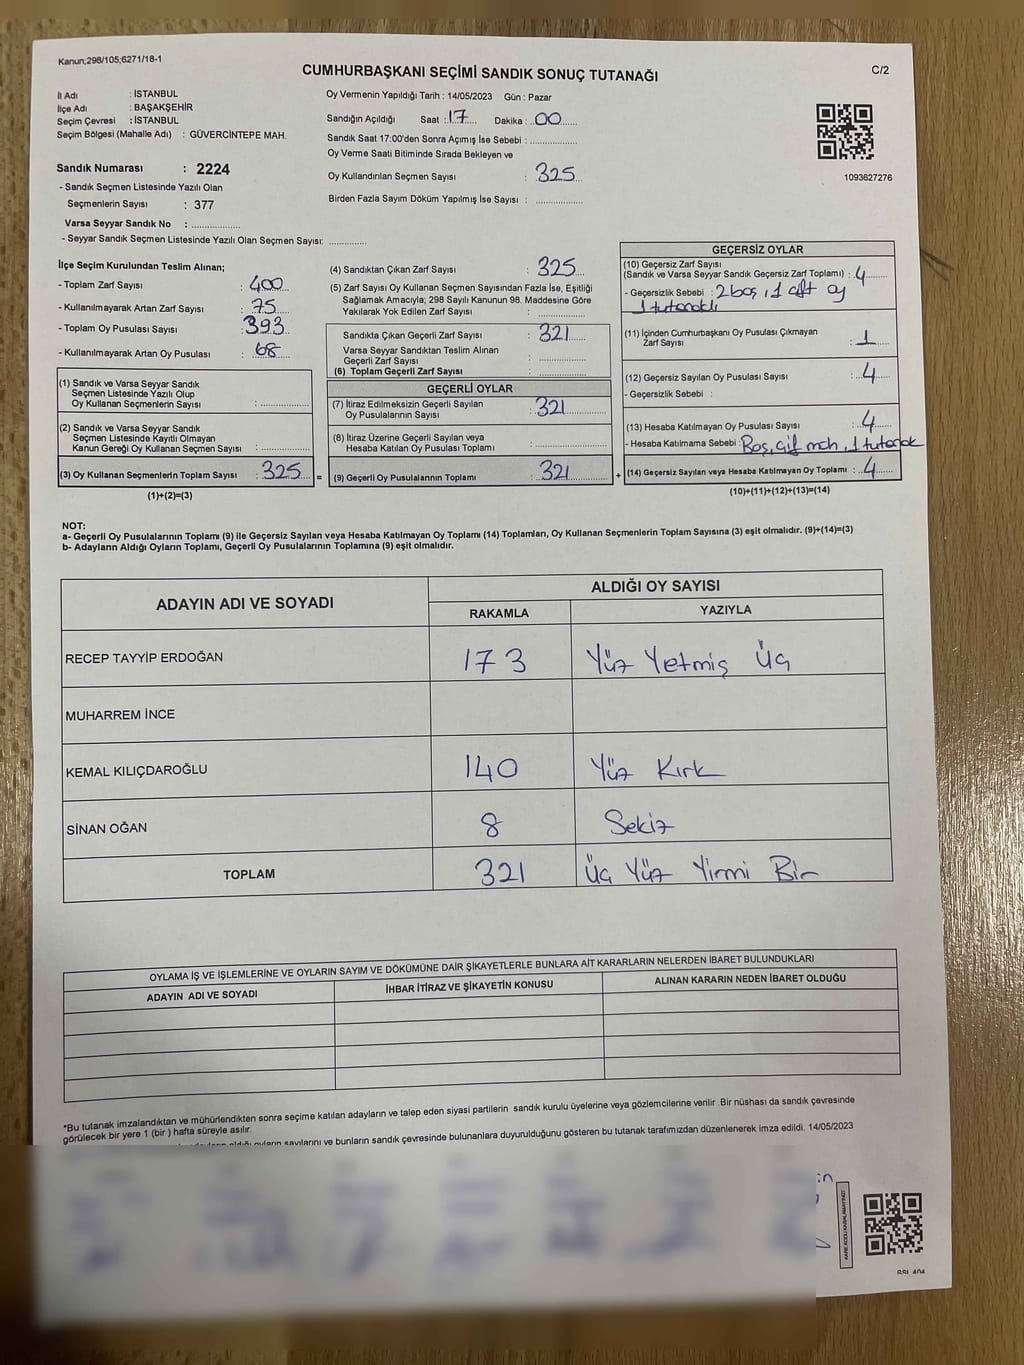 Kanun;298/105;6271/18-1
CUMHURBAŞKANI SEÇİMİ SANDIK SONUÇ TUTANAĞI
C/2
İl Adı : İSTANBUL
İlçe Adı : BAŞAKŞEHİR
Seçim Çevresi : İSTANBUL
Seçim Bölgesi (Mahalle Adı) : GÜVERCİNTEPE MAH.
Sandık Numarası : 2224
- Sandık Seçmen Listesinde Yazılı Olan
Seçmenlerin Sayısı : 377
Varsa Seyyar Sandık No : ...................
- Seyyar Sandık Seçmen Listesinde Yazılı Olan Seçmen Sayısı: ..............
Oy Vermenin Yapıldığı Tarih : 14/05/2023 Gün : Pazar
Sandığın Açıldığı Saat : 17 Dakika : 00
Sandık Saat 17:00'den Sonra Açımış İse Sebebi : ..................
Oy Verme Saati Bitiminde Sırada Bekleyen ve
Oy Kullandırılan Seçmen Sayısı : 325
Birden Fazla Sayım Döküm Yapılmış İse Sayısı : ..................
1093627276
İlçe Seçim Kurulundan Teslim Alınan;
- Toplam Zarf Sayısı : 400
- Kullanılmayarak Artan Zarf Sayısı : 75
- Toplam Oy Pusulası Sayısı : 393
- Kullanılmayarak Artan Oy Pusulası : 68
(1) Sandık ve Varsa Seyyar Sandık
Seçmen Listesinde Yazılı Olup
Oy Kullanan Seçmenlerin Sayısı : ..................
(2) Sandık ve Varsa Seyyar Sandık
Seçmen Listesinde Kayıtlı Olmayan
Kanun Gereği Oy Kullanan Seçmen Sayısı : ..................
(3) Oy Kullanan Seçmenlerin Toplam Sayısı : 325 =
(1)+(2)=(3)
(4) Sandıktan Çıkan Zarf Sayısı : 325
(5) Zarf Sayısı Oy Kullanan Seçmen Sayısından Fazla İse, Eşitliği
Sağlamak Amacıyla; 298 Sayılı Kanunun 98. Maddesine Göre
Yakılarak Yok Edilen Zarf Sayısı : ..................
Sandıkta Çıkan Geçerli Zarf Sayısı : 321
Varsa Seyyar Sandıktan Teslim Alınan
Geçerli Zarf Sayısı : ..................
(6) Toplam Geçerli Zarf Sayısı : ..................
GEÇERLİ OYLAR
(7) İtiraz Edilmeksizin Geçerli Sayılan
Oy Pusulalarının Sayısı : 321
(8) İtiraz Üzerine Geçerli Sayılan veya
Hesaba Katılan Oy Pusulaları Toplamı : ..................
(9) Geçerli Oy Pusulalarının Toplamı : 321 +
GEÇERSİZ OYLAR
(10) Geçersiz Zarf Sayısı
(Sandık ve Varsa Seyyar Sandık Geçersiz Zarf Toplamı) : 4
- Geçersizlik Sebebi : 2 boş, 1 çift oy
1 tutanaklı
(11) İçinden Cumhurbaşkanı Oy Pusulası Çıkmayan
Zarf Sayısı : 1
(12) Geçersiz Sayılan Oy Pusulası Sayısı : 4
- Geçersizlik Sebebi :
(13) Hesaba Katılmayan Oy Pusulası Sayısı : 4
- Hesaba Katılmama Sebebi : Boş, çift, 1 tutanak
(14) Geçersiz Sayılan veya Hesaba Katılmayan Oy Toplamı : 4
(10)+(11)+(12)+(13)=(14)
NOT:
a- Geçerli Oy Pusulalarının Toplamı (9) ile Geçersiz Sayılan veya Hesaba Katılmayan Oy Toplamı (14) Toplamları, Oy Kullanan Seçmenlerin Toplam Sayısına (3) eşit olmalıdır. (9)+(14)=(3)
b- Adayların Aldığı Oyların Toplamı, Geçerli Oy Pusulalarının Toplamına (9) eşit olmalıdır.
ADAYIN ADI VE SOYADI
ALDIĞI OY SAYISI
RAKAMLA YAZIYLA
RECEP TAYYİP ERDOĞAN 173 Yüz Yetmiş Üç
MUHARREM İNCE
KEMAL KILIÇDAROĞLU 140 Yüz Kırk
SİNAN OĞAN 8 Sekiz
TOPLAM 321 Üç Yüz Yirmi Bir
OYLAMA İŞ VE İŞLEMLERİNE VE OYLARIN SAYIM VE DÖKÜMÜNE DAİR ŞİKAYETLERLE BUNLARA AİT KARARLARIN NELERDEN İBARET BULUNDUKLARI
ADAYIN ADI VE SOYADI İHBAR İTİRAZ VE ŞİKAYETİN KONUSU ALINAN KARARIN NEDEN İBARET OLDUĞU
*Bu tutanak imzalandıktan ve mühürlendikten sonra seçime katılan adayların ve talep eden siyasi partilerin sandık kurulu üyelerine veya gözlemcilerine verilir. Bir nüshası da sandık çevresinde
görülecek bir yere 1 (bir) hafta süreyle asılır.
aldığı oyların sayılarını ve bunların sandık çevresinde bulunanlara duyurulduğunu gösteren bu tutanak tarafımızdan düzenlenerek imza edildi. 14/05/2023